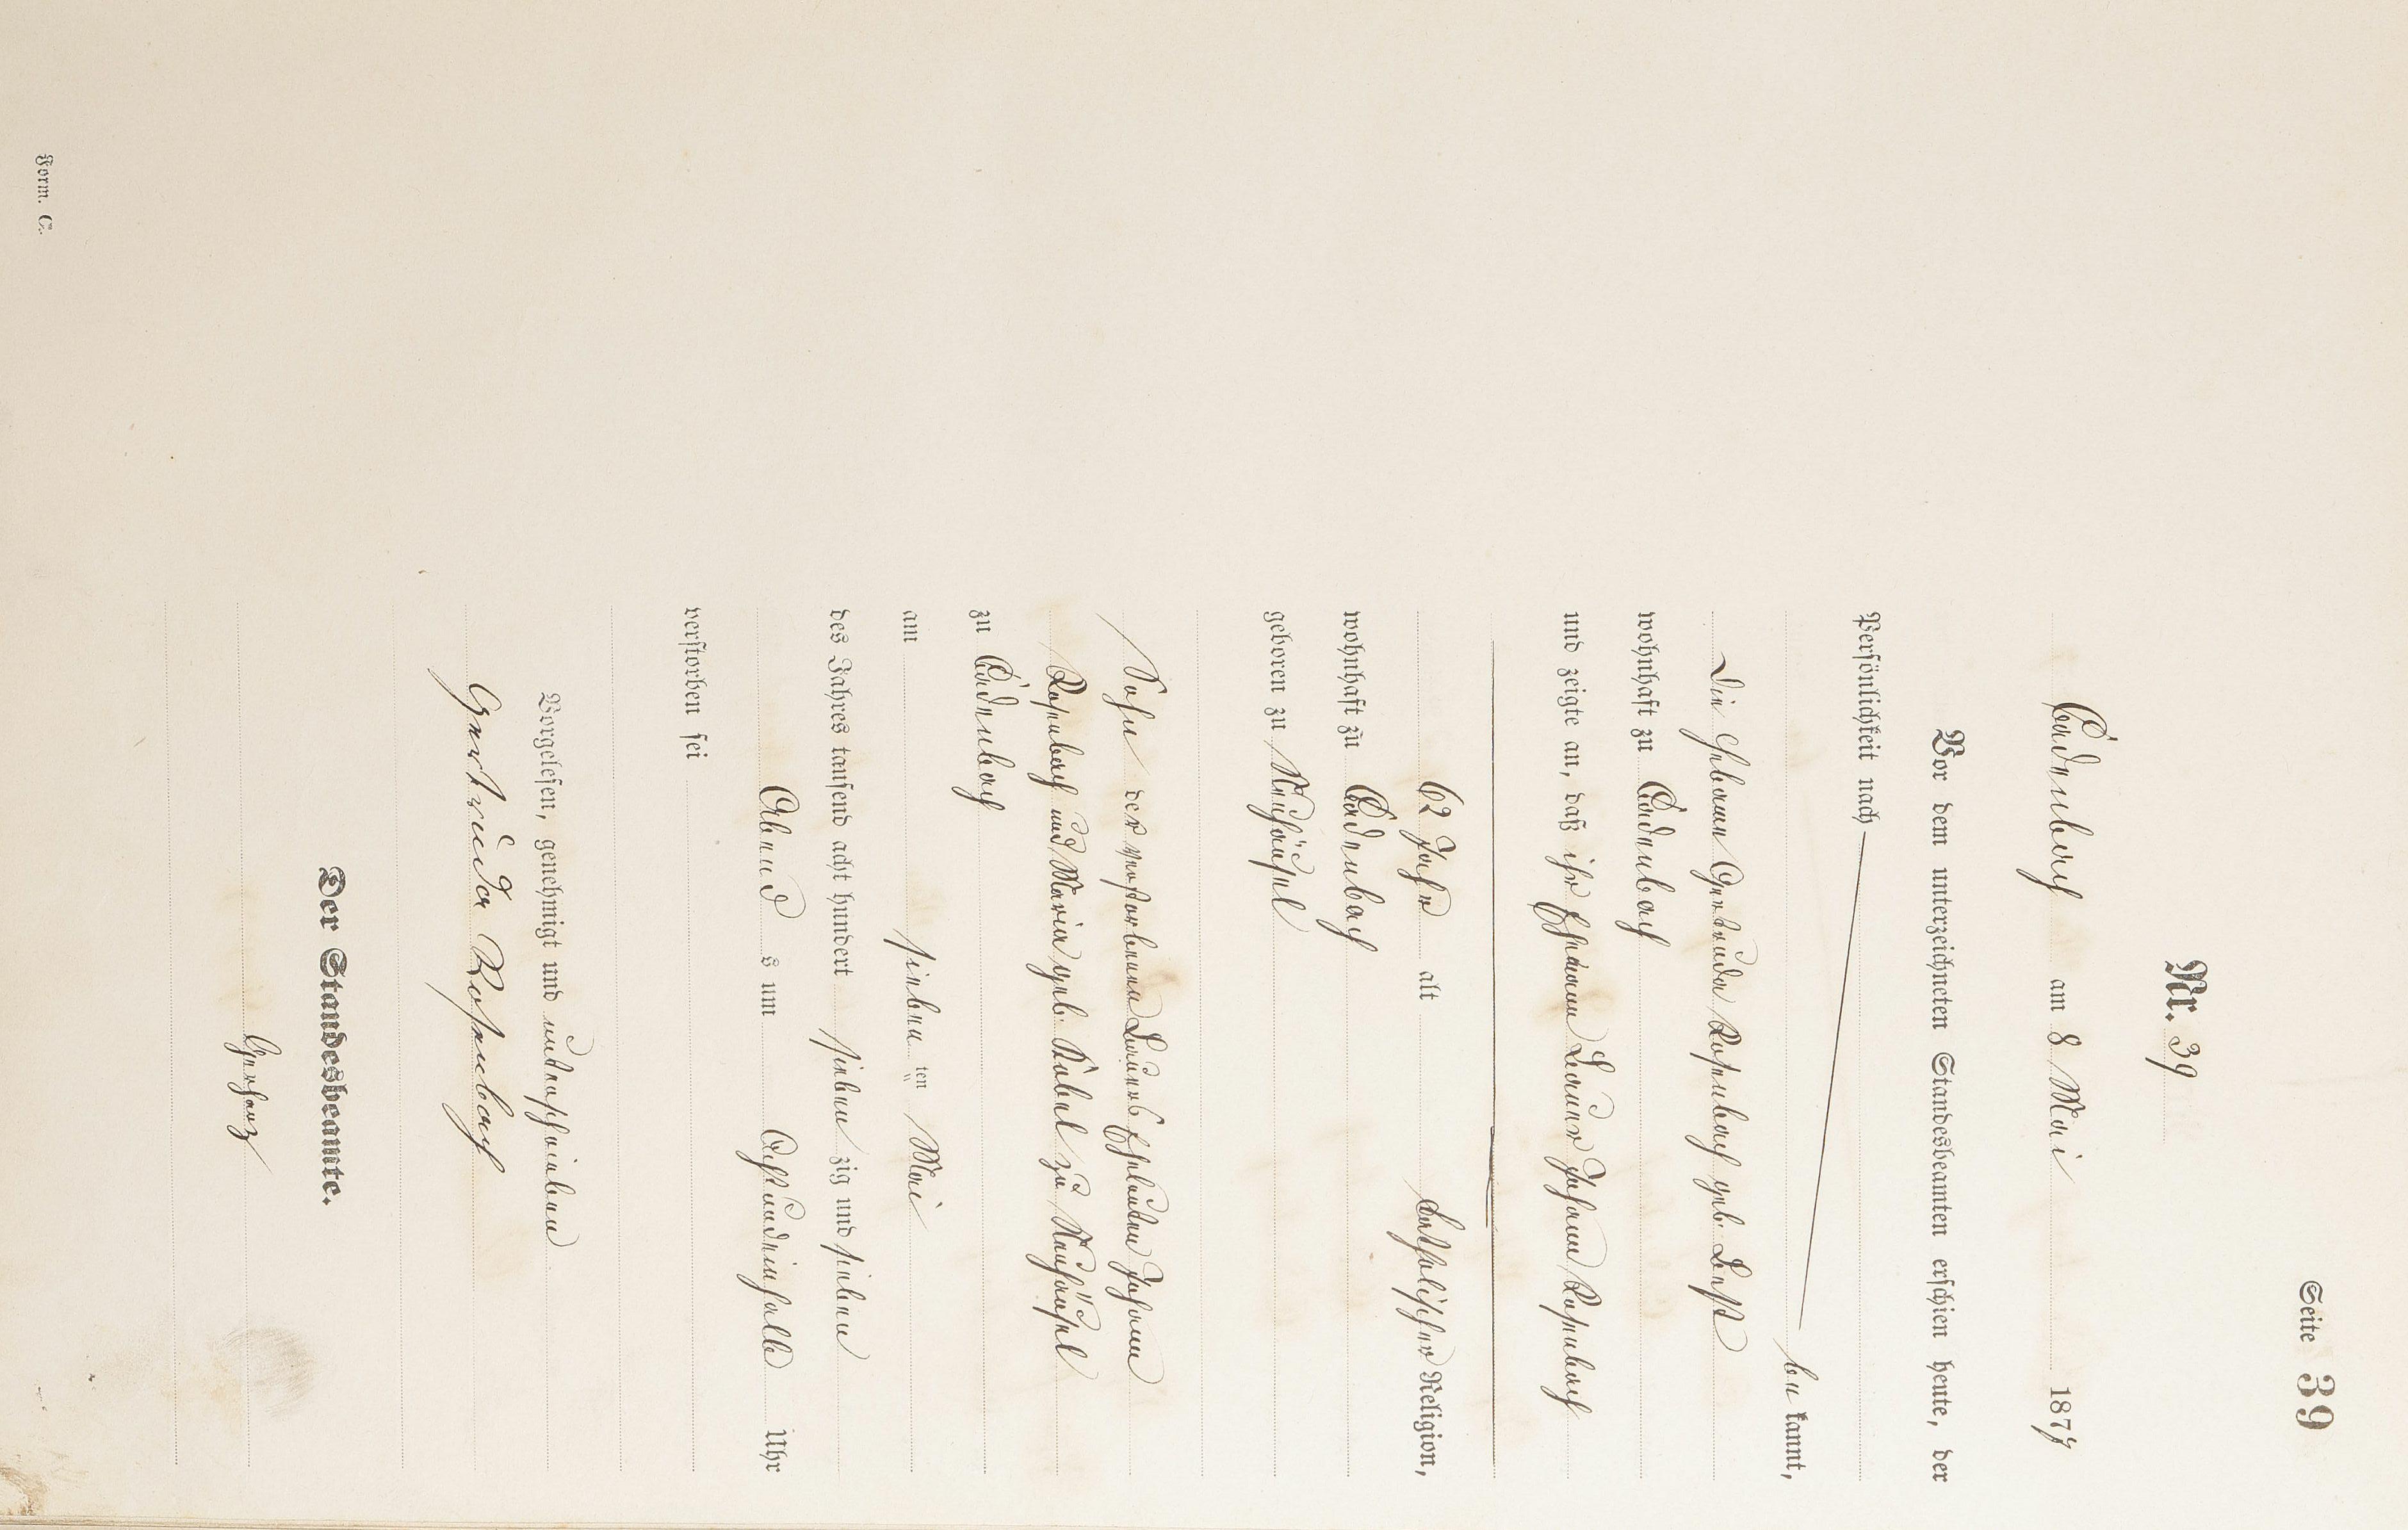 Seite 39
Nr. 39
Cadenbach am 8 Mai 1877
Vor dem unterzeichneten Standesbeamten erschien heute, der
Persönlichkeit nach
be kannt,
die Ehefrau Gertruda Rosenbach geb. 
wohnhaft zu Cadenbach
und zeigte an, daß ihr Ehemann Bauer Johann Rosenbach
62 Jahr alt katholischer Religion,
wohnhaft zu Cadenbach
geboren zu Neuhäusel
Sohn der verstorbenen Bauers Eheleuten Johann
Rosenbach und Maria geb. Sabel zu Neuhäusel
zu Cadenbach
am sieben ten Mai
des Jahres tausend acht hundert sieben zig und sieben
Abend s um Uhr
verstorben sei
Vorgelesen, genehmigt und unterschrieben
Gertruda Rosenbach
Der Standesbeamte.
Gerharz
Form. C.